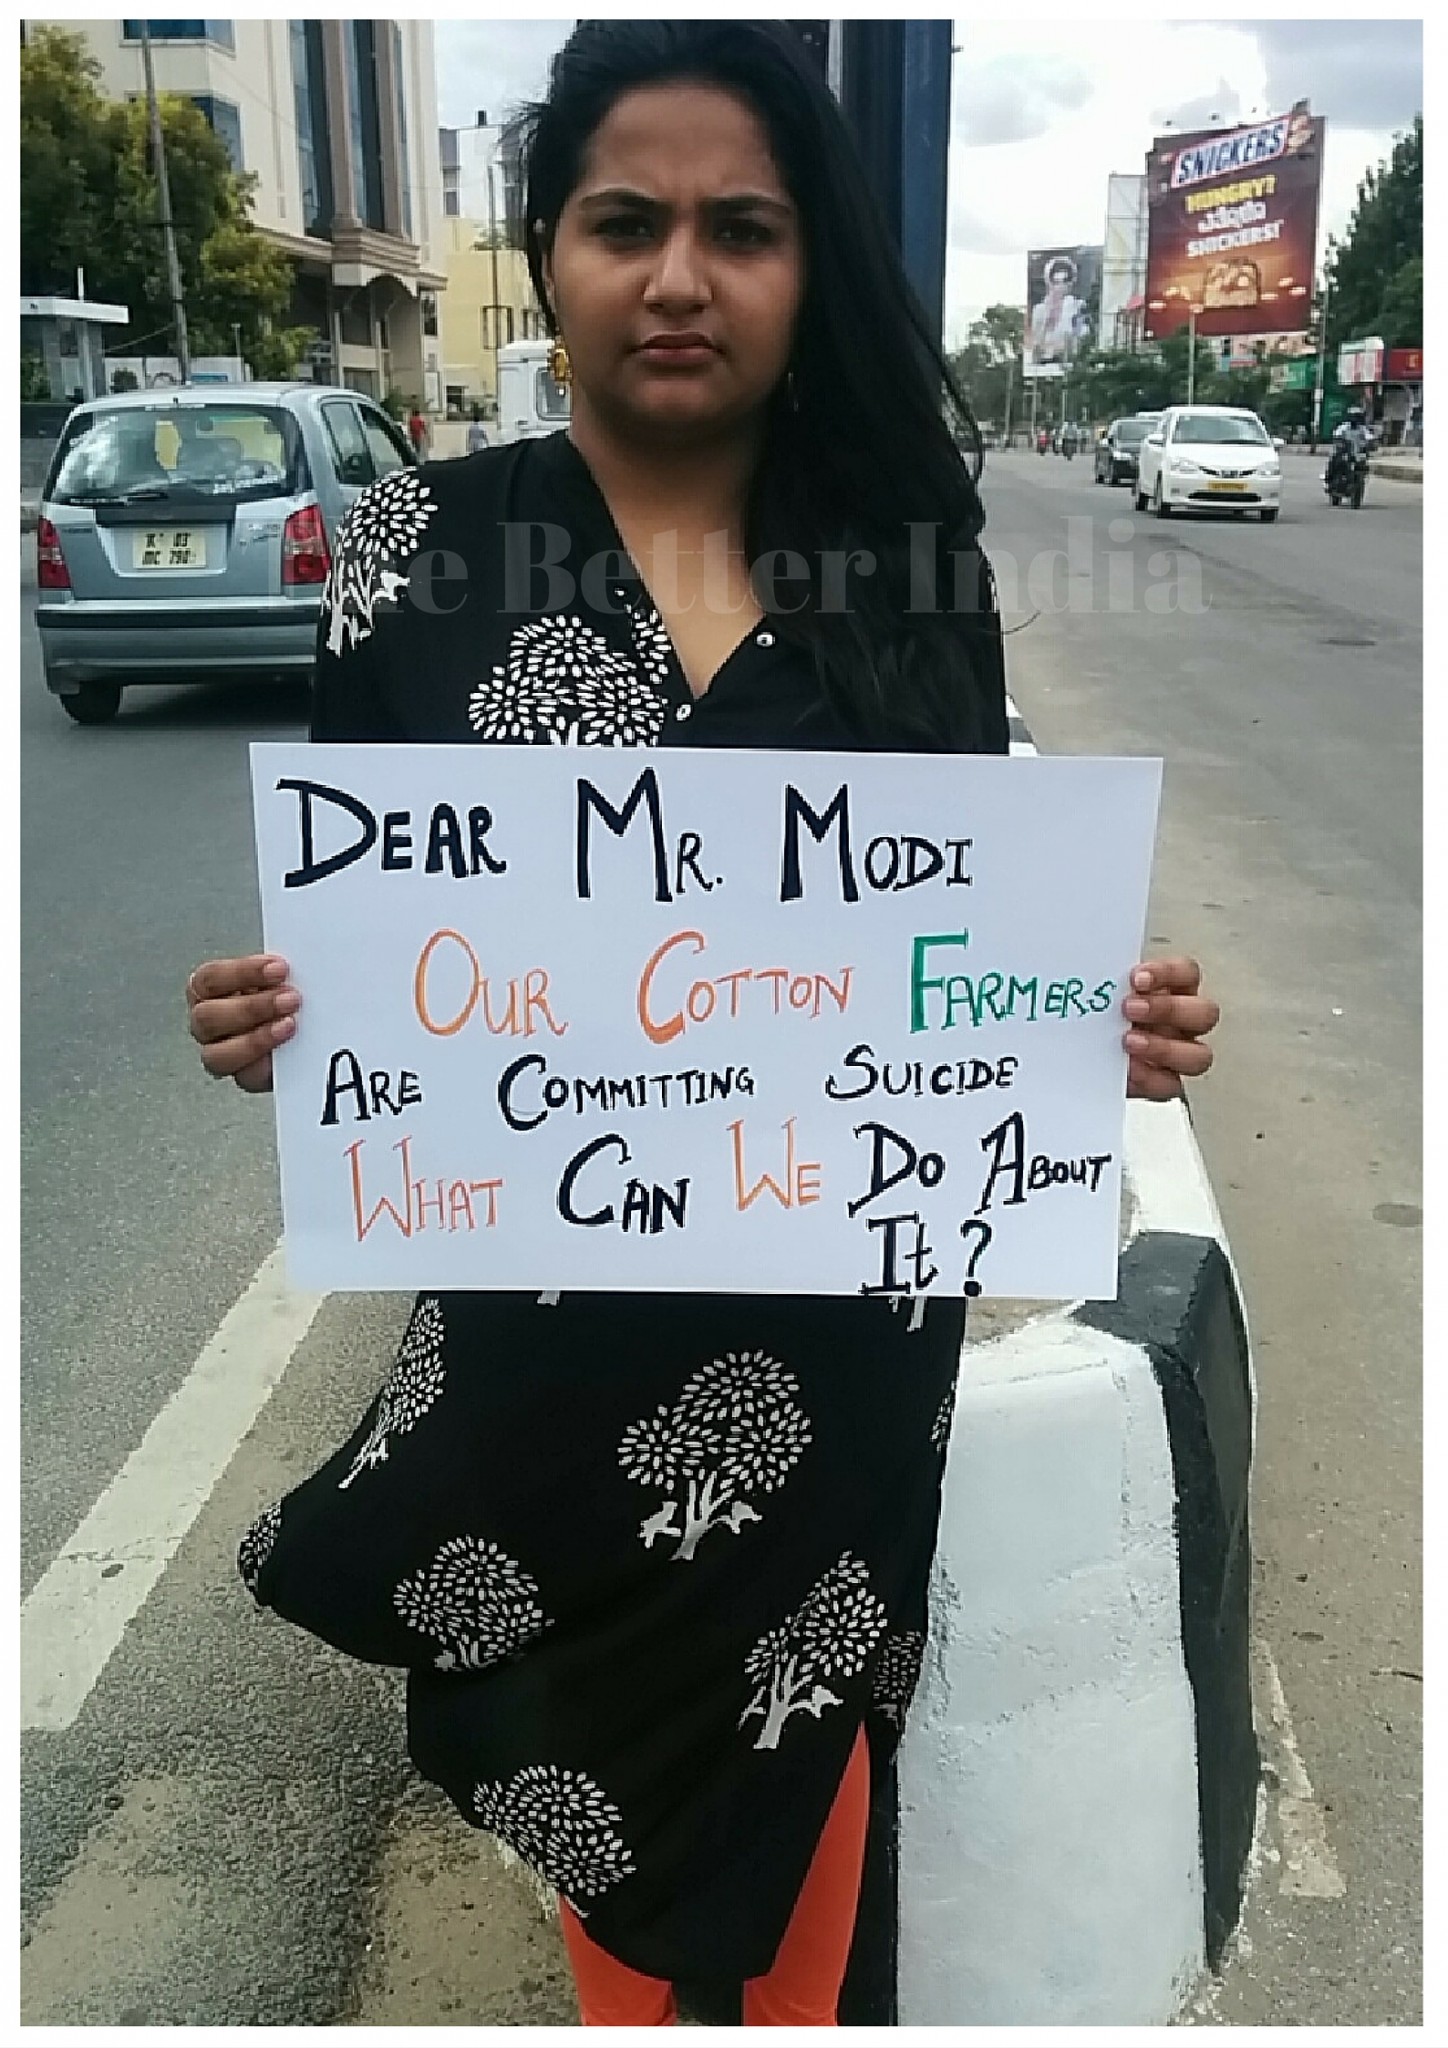 SNICKERS
HUNGRY?
SNICKERS!
03
MC 790
The Better India
DEAR MR. MODI
OUR COTTON FARMERS
ARE COMMITTING SUICIDE
WHAT CAN WE DO ABOUT
It?